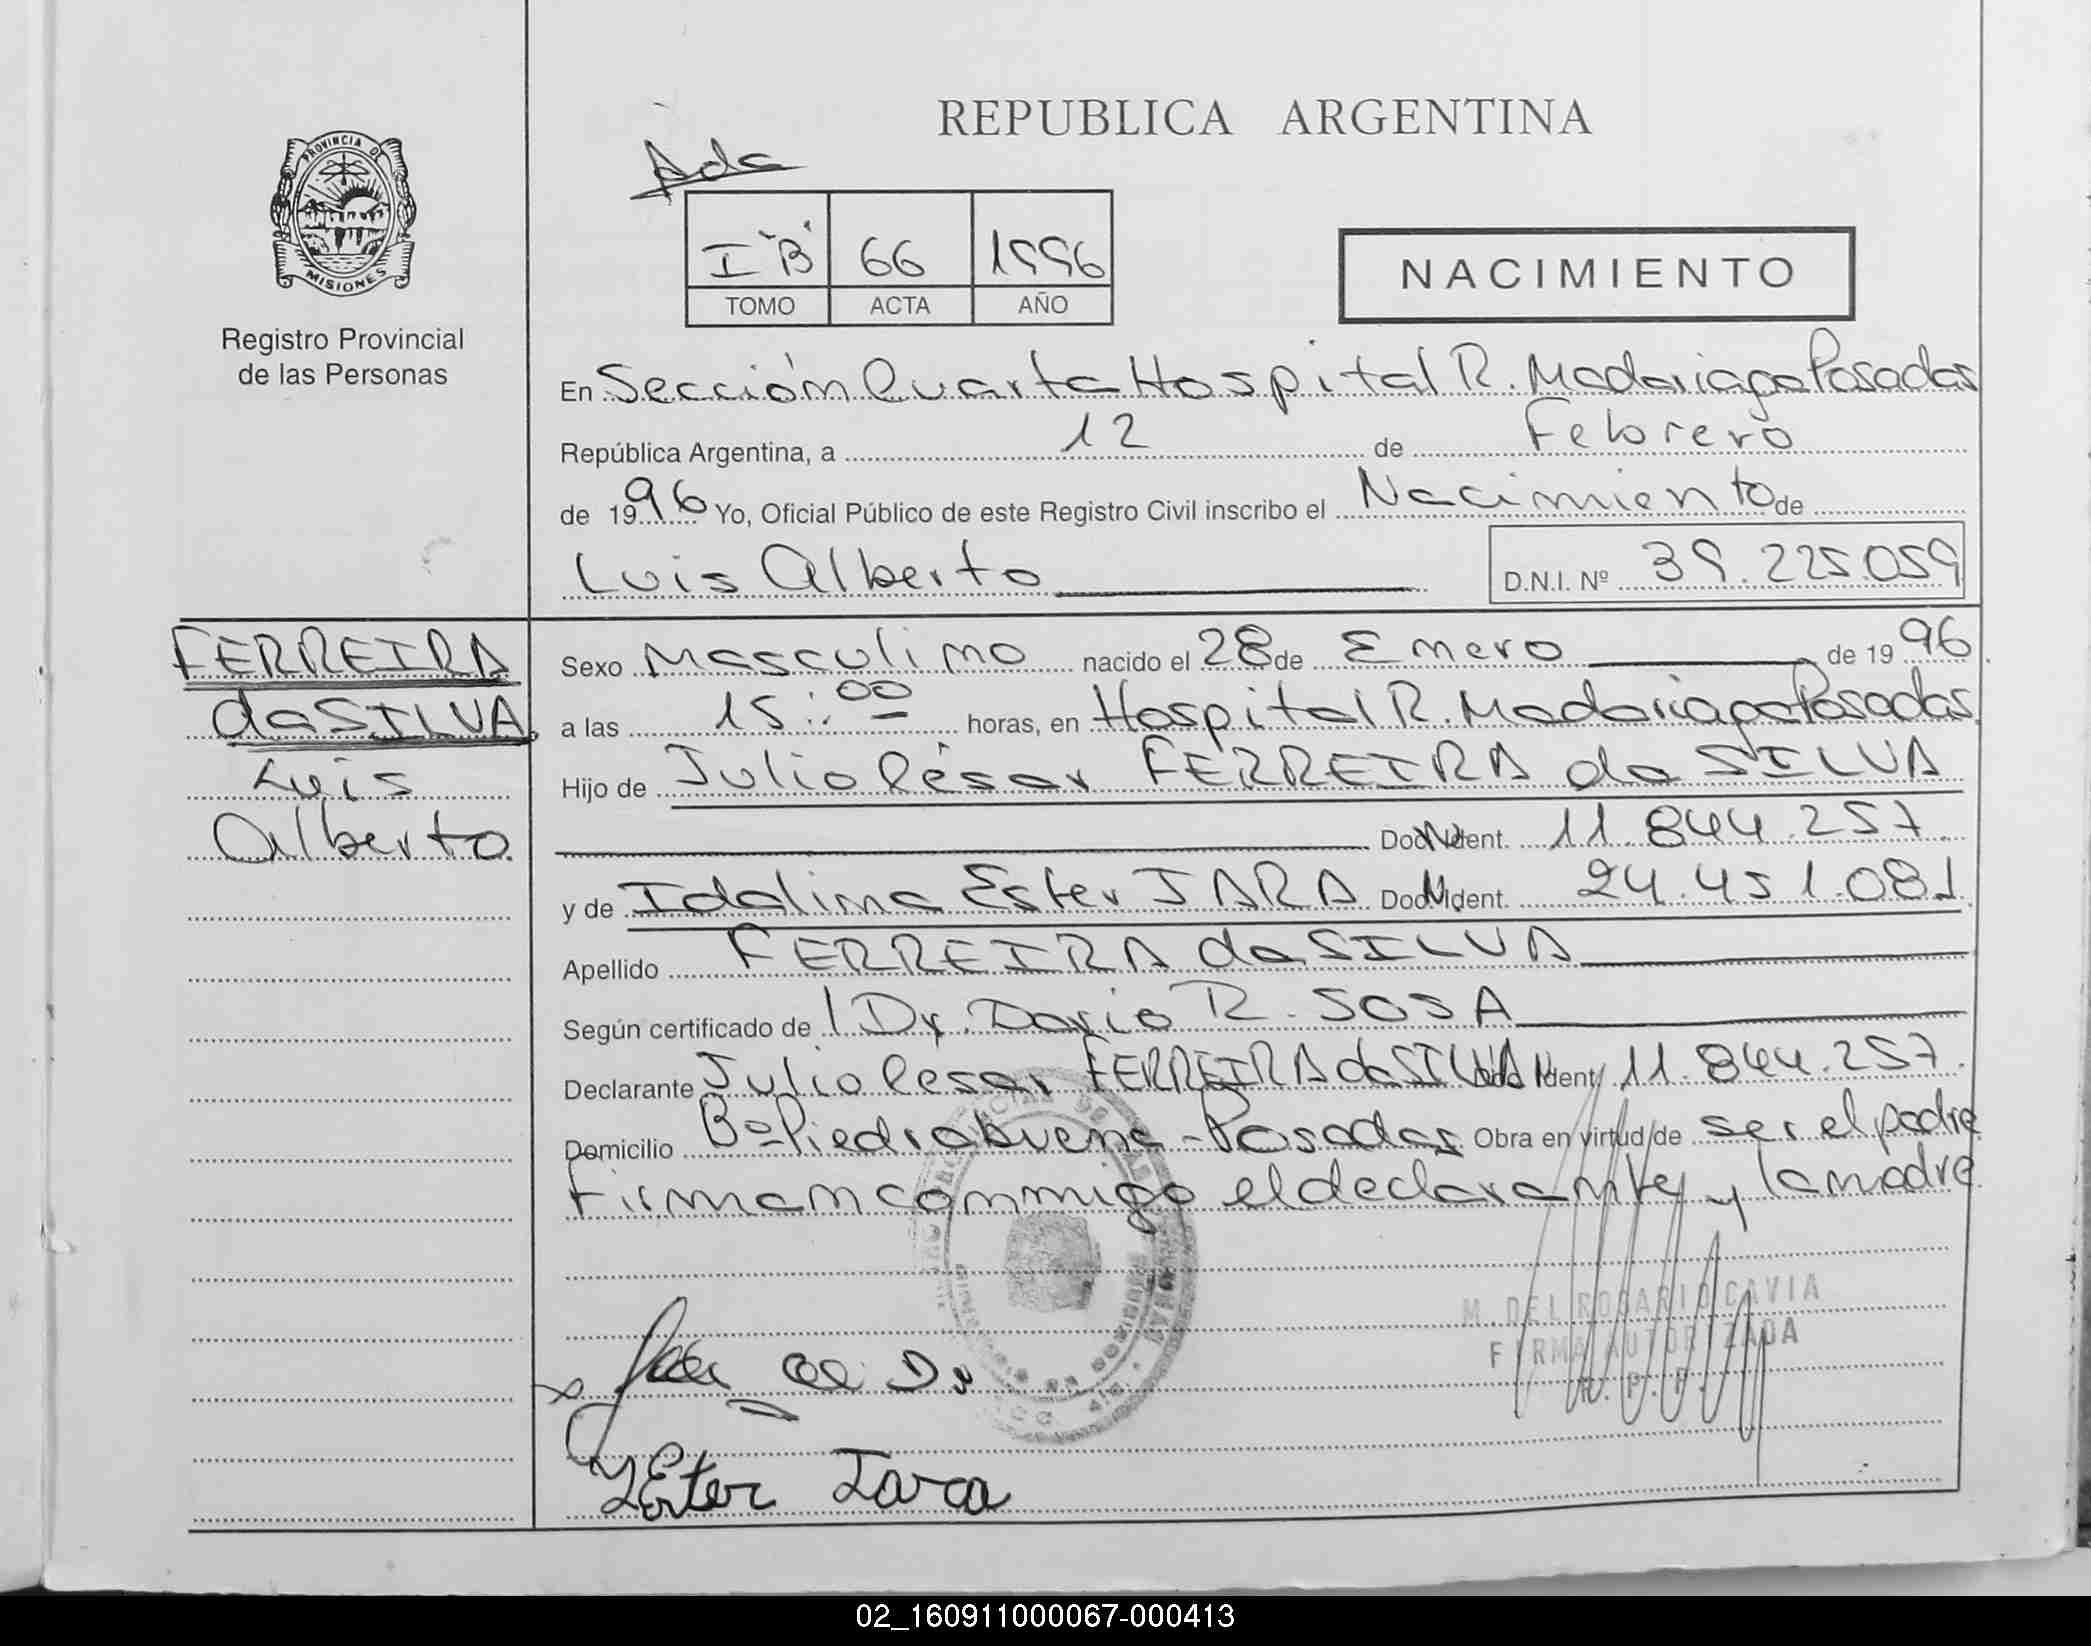 REPUBLICA ARGENTINA
PROVINCIA DE
MISIONES
Registro Provincial
de las Personas
Ada
I "B" 66 1996
TOMO ACTA AÑO
NACIMIENTO
En Sección Cuarta Hospital R. Madariaga Posadas
República Argentina, a 12 de Febrero
de 1996 Yo, Oficial Público de este Registro Civil inscribo el Nacimiento de
Luis Alberto D.N.I. Nº 39.225.059
FERREIRA
da SILVA
Luis
Alberto
Sexo Masculino nacido el 28 de Enero de 1996
a las 15:00 horas, en Hospital R. Madariaga Posadas
Hijo de Julio César FERREIRA da SILVA
Doc. Ident. 11.844.257
y de Idalina Ester JARA Doc. Ident. 24.451.081
Apellido FERREIRA da SILVA
Según certificado de Dr. Dario R. SOSA
Declarante Julio César FERREIRA da SILVA Doc. Ident. 11.844.257
Domicilio Bº Piedrabuena - Posadas Obra en virtud de ser el padre
firman conmigo el declarante y la madre
M. DEL ROSARIO CAVIA
FIRMA AUTORIZADA
R. P. P.
Ester Jara
02_160911000067-000413